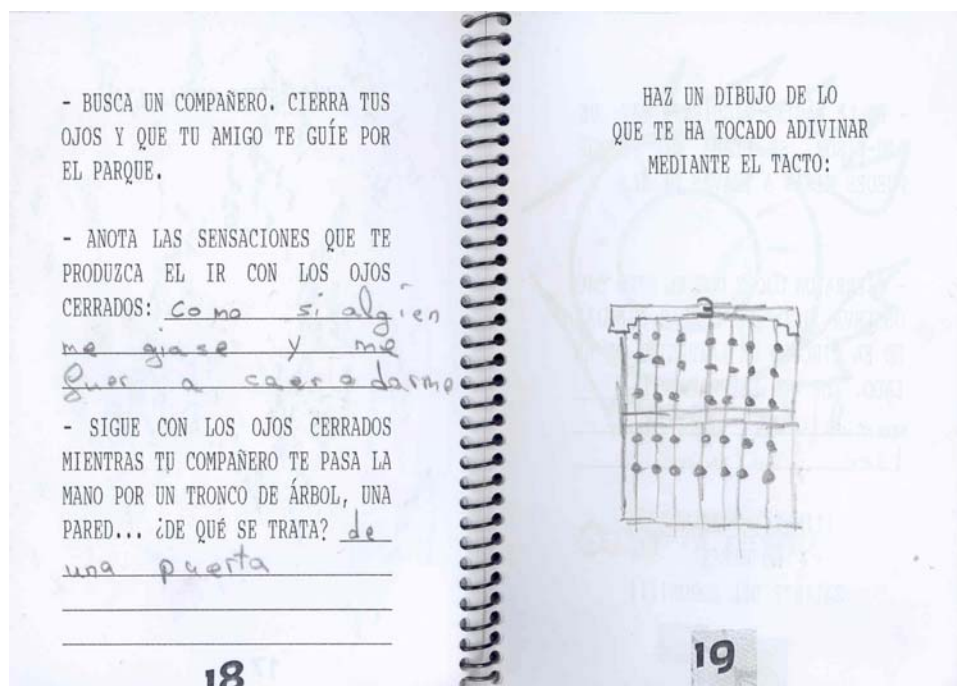 - BUSCA UN COMPAÑERO. CIERRA TUS
OJOS Y QUE TU AMIGO TE GUÍE POR
EL PARQUE.
- ANOTA LAS SENSACIONES QUE TE
PRODUZCA EL IR CON LOS OJOS
CERRADOS: como si algien
me giase y me
fuer a caer o darme
- SIGUE CON LOS OJOS CERRADOS
MIENTRAS TU COMPAÑERO TE PASA LA
MANO POR UN TRONCO DE ÁRBOL, UNA
PARED... ¿DE QUÉ SE TRATA? de
una puerta
18
HAZ UN DIBUJO DE LO
QUE TE HA TOCADO ADIVINAR
MEDIANTE EL TACTO:
19